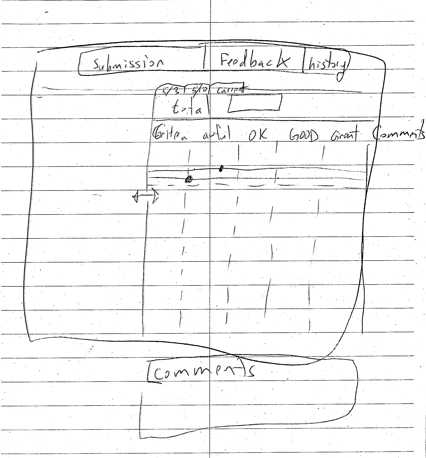 Submission Feedback history
5/3 5/10 current
tota
Criteria awful OK GOOD Great Comments
Comments